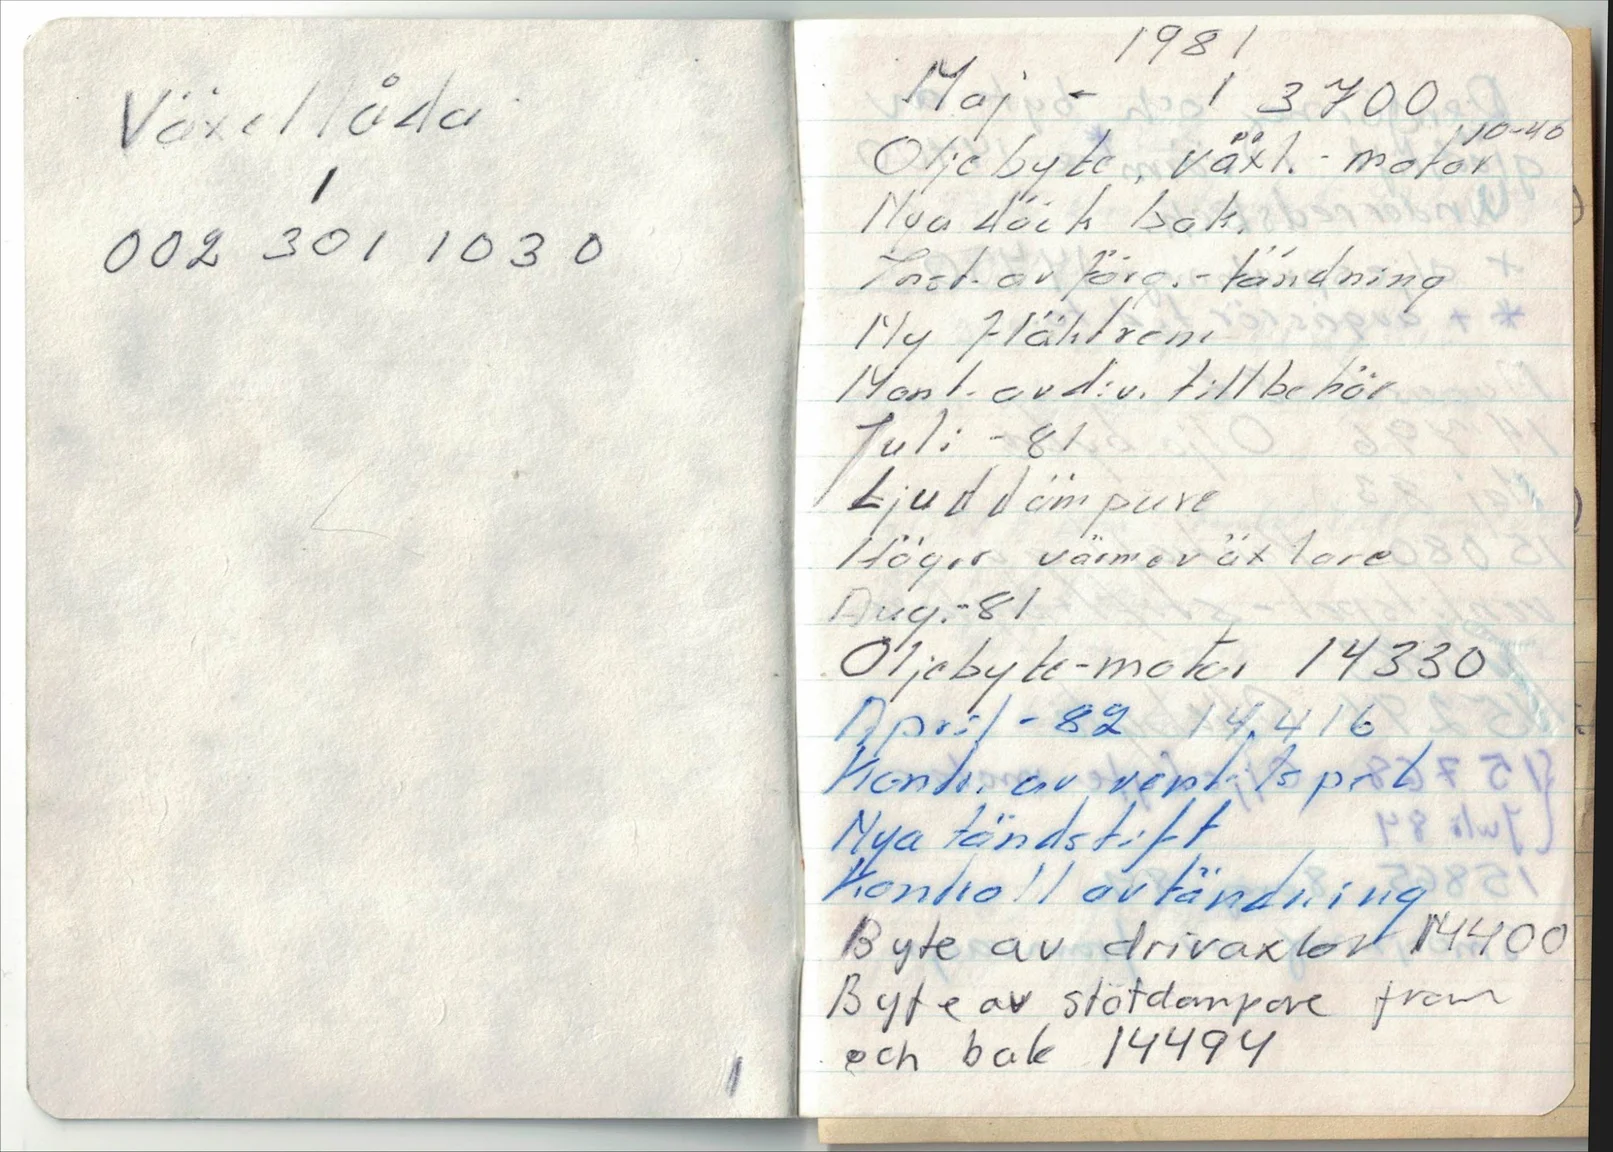 Växellåda
1
002 301 1030
1981
Maj - 13700
Oljebyte, växl. - motor 10-40
Nya däck bak.
Inst. av förg. - tändning
Ny fläktrem
Mont. av div. tillbehör
Juli - 81
Ljuddämpare
Höger värmeväxlare
Aug. - 81
Oljebyte - motor 14330
April - 82 14.416
Kontr. av ventilspel
Nya tändstift
Kontroll av tändning
Byte av drivaxlar 14400
Byte av stötdampare fram
och bak 14494
1